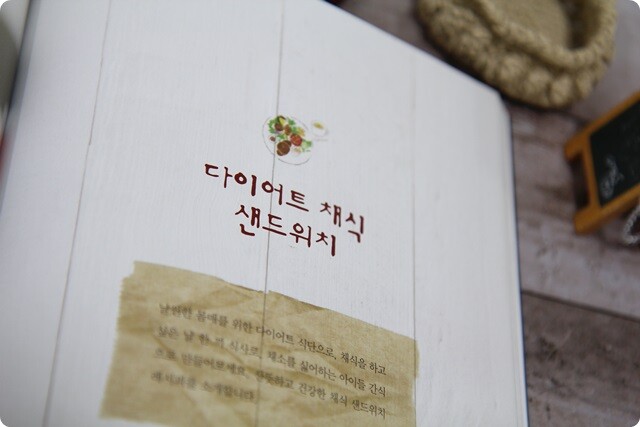 다이어트 채식
샌드위치
날렵한 몸매를 위한 다이어트 식단으로, 채식을 하고
싶은 날 한 끼 식사로, 채소를 싫어하는 아이들 간식
으로 만들어보세요. 든든하고 건강한 채식 샌드위치
레시피를 소개합니다.